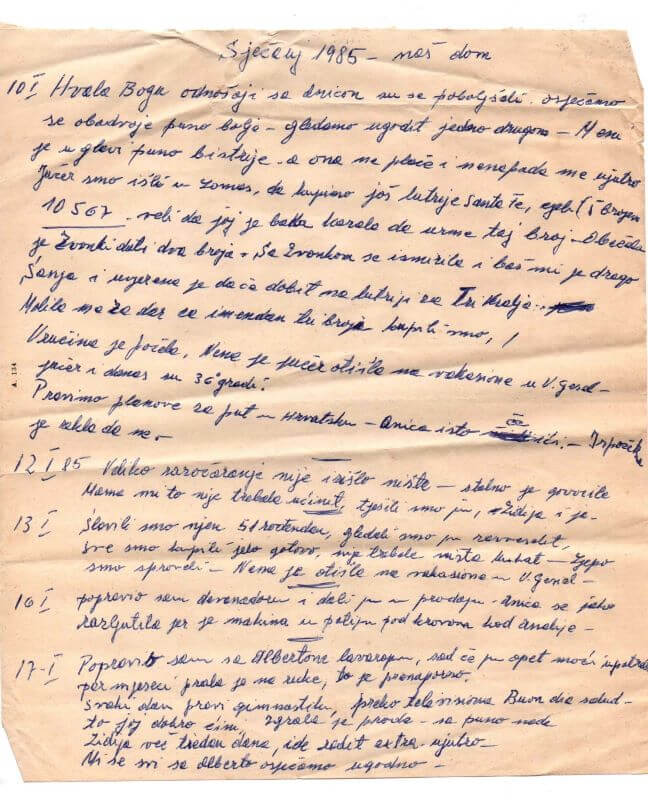 Sječanj 1985 – naš dom
10 I Hvala Bogu odnošaji sa Anicon su se poboljšali. osječamo
se obadvoje puno bolje – gledamo ugodit jedno drugom – Meni
je u glavi puno bistrije. a ona ne plače i nenapada me ujutro
Jučer smo išli u Lomas, da kupimo još lutrije Santa Fe, cjeli broj
10567. veli da joj je baka kazala da uzme taj broj – Obečala
je Zvonki dati dva broja. Sa Zvonkom se ismirila i baš mi je drago
Sanja i uvjerena je da ča dobit na lutriji za Tri Kralja.
Molila me za dar za imendan tri broja kupili smo, !
Vručina je počela, Nena je jučer otišla na vakasione u V. Gesel –
jučer i danas su 36° gradi.
Pravimo planove za put u Hrvatsku – Anica isto ča iči. –
je rekla da ne.
12 I 85 Veliko razočaranje nije izišlo ništa – stalno je govorila
Mama mi to nije trebala učinit, tješili smo ju, Židija i ja.
13 I Slavili smo njen 51 rođendan, gledali smo ju razveselit,
sve smo kupili jelo gotovo, nije trebala ništa kuhat – Ljepo
smo sproveli – Nena je otišla na vakasione u V. Gesel –
16 I popravio sam devanadoru i dali ju u prodaju – Anica se jako
razljutila jer je makina u patiju pod krovom kod Analije –
17 – I Popravio sam sa Albertom lavaropu, sad če ju opet moći upotrebit
par mjeseci prala je na ruke, to je prenaporno.
Svaki dan pravi gimnastiku, preko televisiona Buen dia salud –
to joj dobro čini, zgrala je proda – sa puno nade
Židija več tredan dana, ide radit extra ujutro –
Mi se svi sa Alberto osječamo ugodno –
A. 134